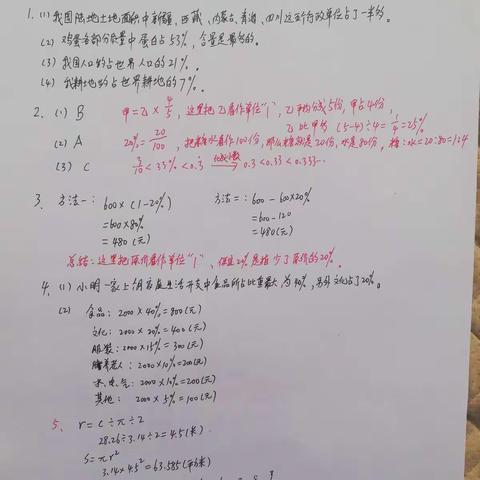 1. (1) 我国陆地土地面积中新疆、西藏、内蒙古、青海、四川这五个行政单位占了一半多。
(2) 鸡蛋各部分质量中蛋白占53%,含量是最多的。
(3) 我国人口约占世界人口的21%。
(4) 我国耕地约占世界耕地的7%。
2. (1) B 甲=乙×4/5,这里把乙看作单位"1",乙平均分成5份,甲占4份,
乙比甲多 (5-4)÷4=1/4=25%
(2) A 20%=20/100,把糖水看作100份,那么糖就是20份,水是80份,糖:水=20:80=1:4
(3) C 3/10<33%<0.3 化成小数 0.3<0.33<0.333…
3. 方法一:600×(1-20%) 方法二:600-600×20%
=600×80% =600-120
=480(元) =480(元)
总结:这里把原价看作单位"1",降20%是指少了原价的20%。
4. (1) 小明一家上个月家庭生活开支中食品所占比重最大为40%,另外文化占了20%。
(2) 食品:2000×40%=800(元)
文化:2000×20%=400(元)
服装:2000×15%=300(元)
赡养老人:2000×10%=200(元)
水、电、气:2000×10%=200(元)
其他:2000×5%=100(元)
5. r=c÷π÷2
28.26÷3.14÷2=4.5(米)
S=πr²
3.14×4.5²=63.585(平方米)